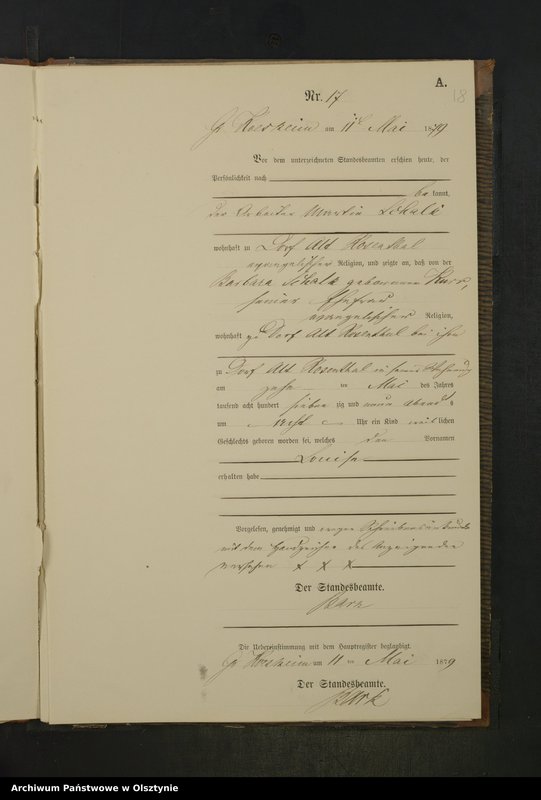 A.
18
Nr. 17
am 11 Mai 1879
Vor dem unterzeichneten Standesbeamten erschien heute, der
Persönlichkeit nach
be kannt,
der Arbeiter Martin Schalk
wohnhaft zu Dorf Alt Rosenthal
evangelischer Religion, und zeigte an, daß von der
Barbara Schalk geborenen
seiner Ehefrau
evangelischer Religion,
wohnhaft zu Dorf Alt Rosenthal bei ihm
zu Dorf Alt Rosenthal in seiner Wohnung
am zehn ten Mai des Jahres
tausend acht hundert sieben zig und neun Abends
um acht Uhr ein Kind weib lichen
Geschlechts geboren worden sei, welches den Vornamen
Louise
erhalten habe
Vorgelesen, genehmigt und wegen Schreibensunkunde
mit dem Handzeichen des Anzeigenden
versehen x x x
Der Standesbeamte.
Die Uebereinstimmung mit dem Hauptregister beglaubigt.
am 11 ten Mai 1879
Der Standesbeamte.
Archiwum Państwowe w Olsztynie